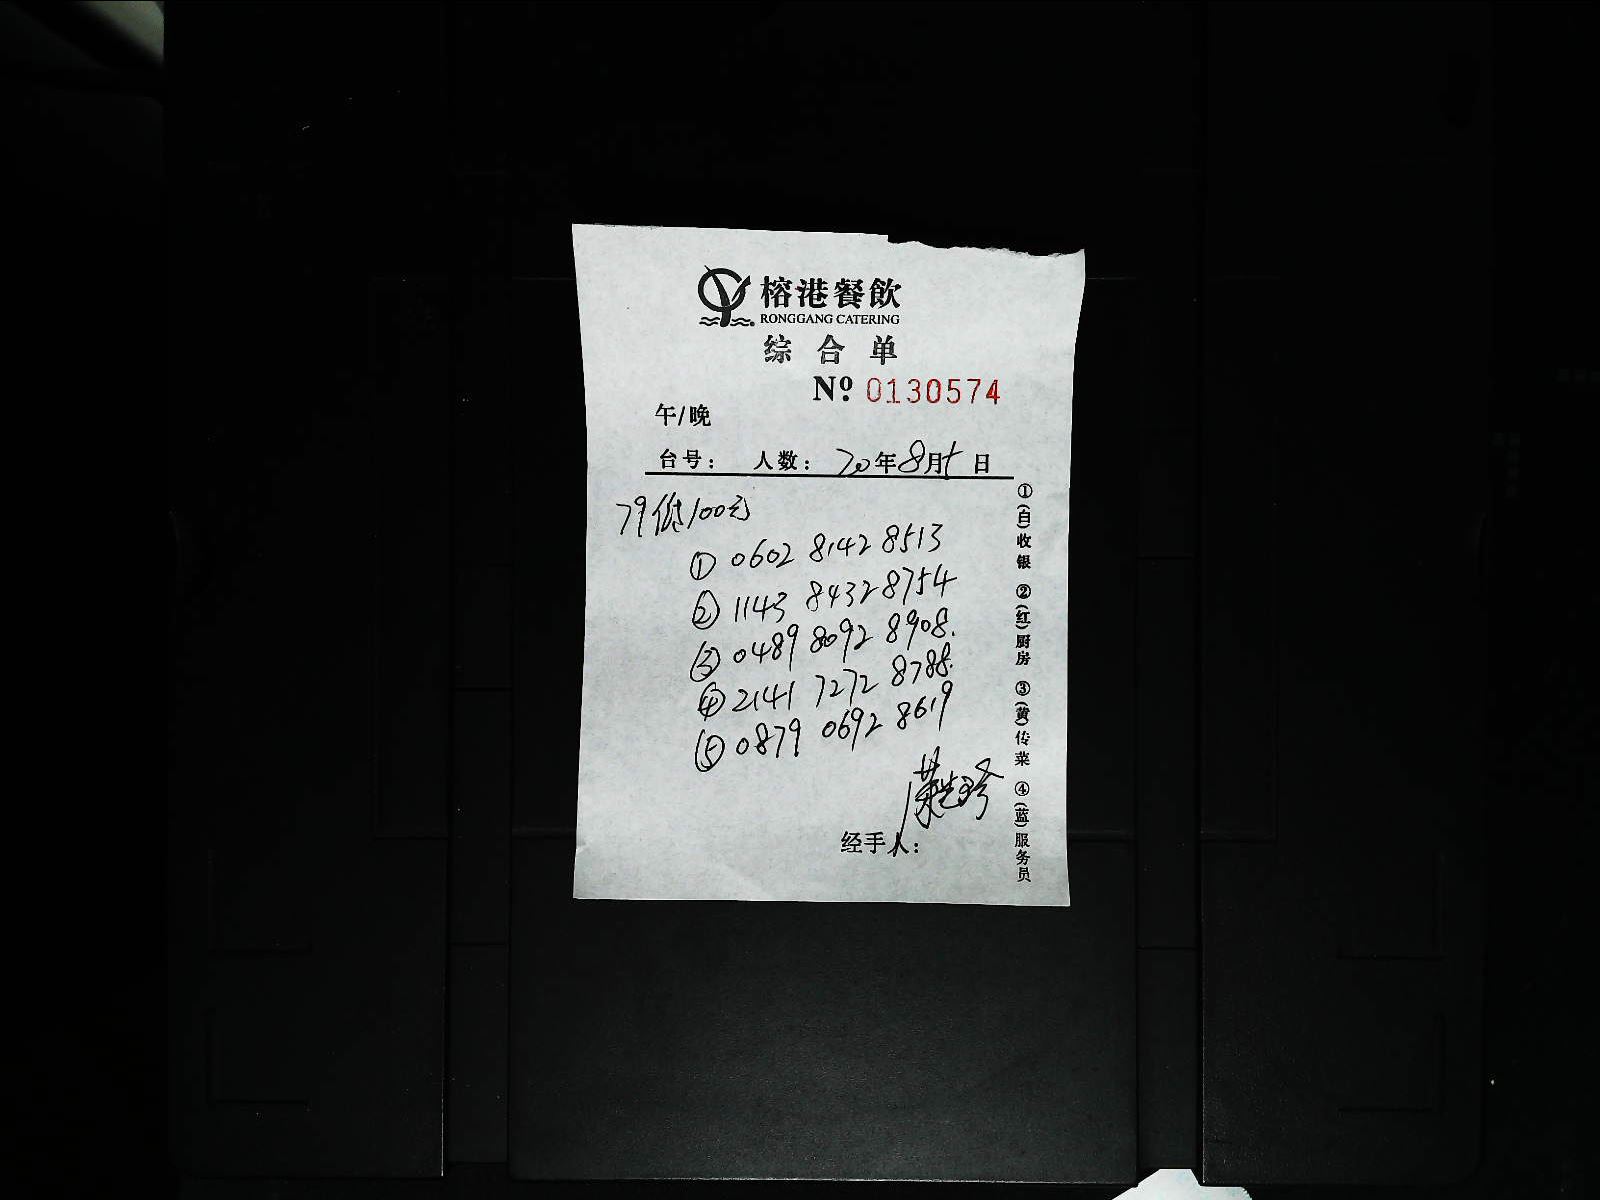 榕港餐飲
RONGGANG CATERING
综合单
Nº 0130574
午/晚
台号： 人数： 20年8月5日
79低100元
① 0602 8142 8513
② 1143 8432 8754
③ 0489 8092 8908.
④ 2141 7272 8788.
⑤ 0879 0692 8619
经手人：
①(白)收银 ②(红)厨房 ③(黄)传菜 ④(蓝)服务员